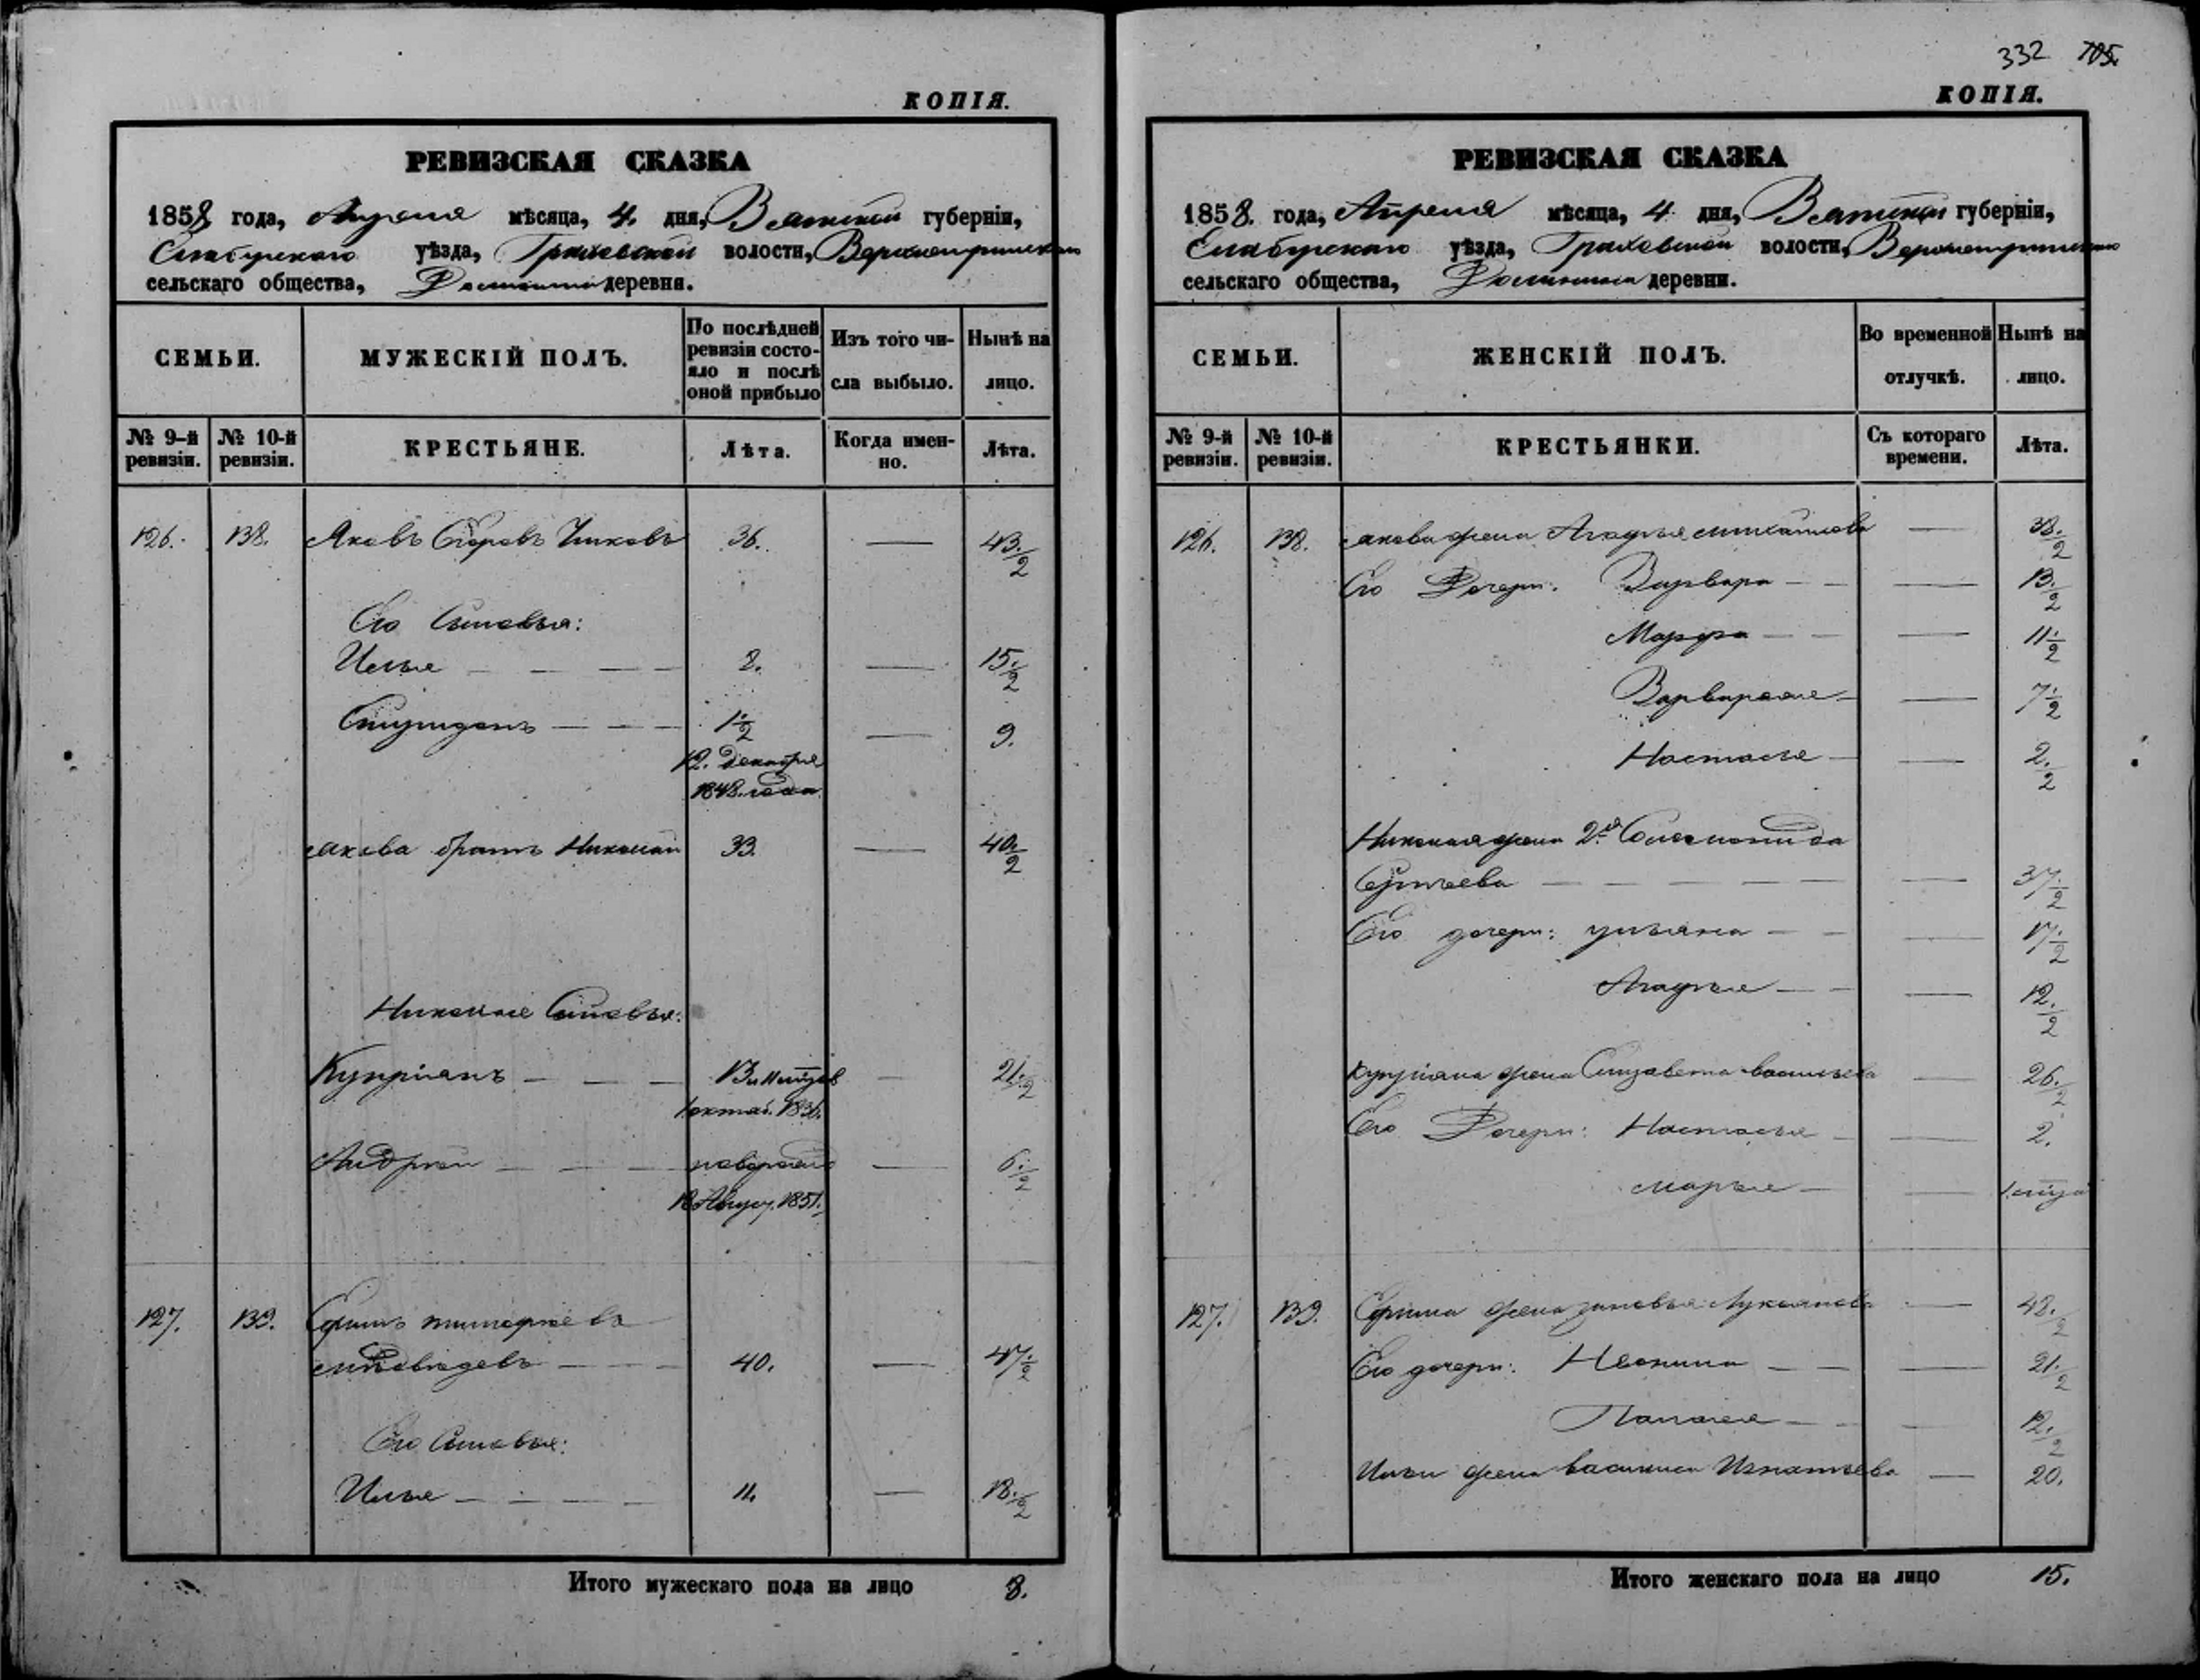 КОПІЯ.
РЕВИЗСКАЯ СКАЗКА
1858 года, Апреля мѣсяца, 4. дня, Вятской губерніи,
Елабугскаго уѣзда, Граховской волости,
сельскаго общества, деревни.
СЕМЬИ.
МУЖЕСКІЙ ПОЛЪ.
По послѣдней
ревизіи состо-
яло и послѣ
оной прибыло
Изъ того чи-
сла выбыло.
Нынѣ на
лицо.
№ 9-й
ревизіи.
№ 10-й
ревизіи.
КРЕСТЬЯНЕ.
Лѣта.
Когда имен-
но.
Лѣта.
126. 138. Яковъ Егоровъ 36. — 43 1/2
Его Сыновья:
Илья — — — 8. — 15 1/2
Спиридонъ — — — 1 1/2 — 9.
12. Декабря
1848. года
Якова братъ Николай 33. — 40 1/2
Николая Сыновья:
Купріянъ — — — 21 1/2
Андрей — — — — 6 1/2
18 Авгус. 1851.
127. 139. Ефимъ
— — — 40. — 47 1/2
Его Сыновья:
Илья — — — — 11. — 18 1/2
Итого мужескаго пола на лицо 8.
332 705.
КОПІЯ.
РЕВИЗСКАЯ СКАЗКА
1858. года, Апреля мѣсяца, 4 дня, Вятской губерніи,
Елабугскаго уѣзда, Граховской волости,
сельскаго общества, деревни.
СЕМЬИ.
ЖЕНСКІЙ ПОЛЪ.
Во временной
отлучкѣ.
Нынѣ на
лицо.
№ 9-й
ревизіи.
№ 10-й
ревизіи.
КРЕСТЬЯНКИ.
Съ котораго
времени.
Лѣта.
126. 138. Якова жена Агафья Михайлова — 38 1/2
Его Дочери: Варвара — — — 13 1/2
Марфа — — — 11 1/2
Варвара — — 7 1/2
Настасья — — 2 1/2
Николая жена 2я
Сергѣева — — — — — — 37 1/2
Его дочери: Ульяна — — — 17 1/2
Агафья — — — 12 1/2
Купріяна жена Елизавета Васильева — 26 1/2
Его Дочери: Настасья — — 2.
Марья — —
127. 139. Ефима жена Зиновья Лукоянова — 48 1/2
Его дочери: — — — 21 1/2
— — — 12 1/2
Ильи жена Василиса Игнатьева — 20.
Итого женскаго пола на лицо 15.